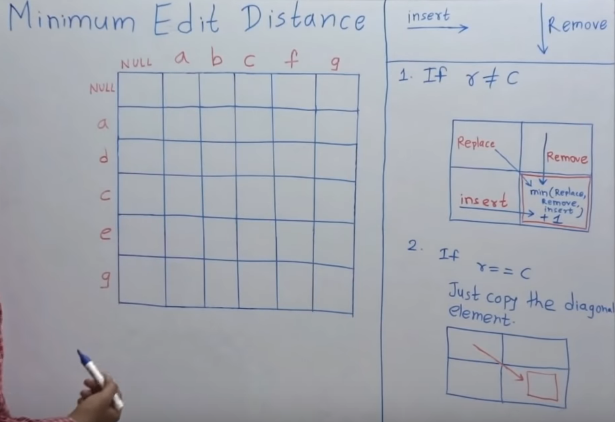 Minimum Edit Distance
NULL a b c f g
NULL
a
d
c
e
g
insert
Remove
1. If r ≠ C
Replace
Remove
insert
min(Replace,
Remove,
insert)
+ 1
2. If
r == C
Just copy the diagonal
element.